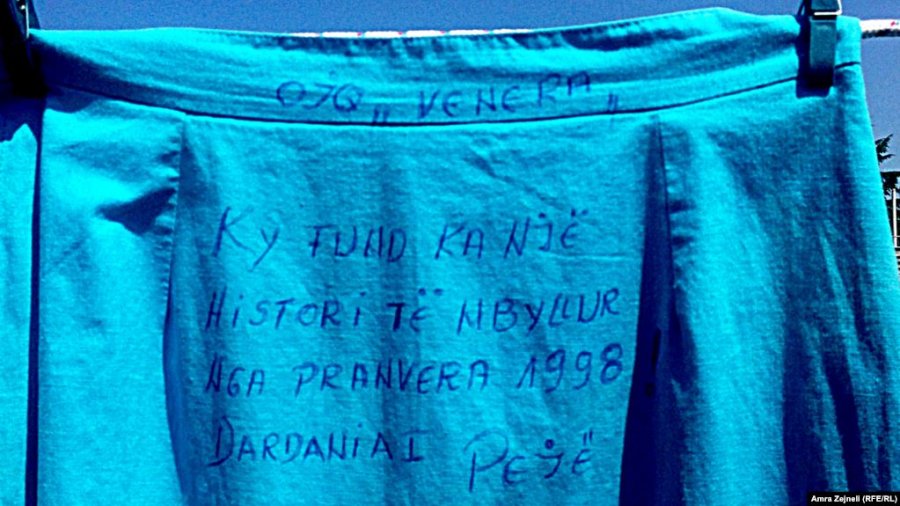 OJQ „VENERA„
KY FUND KA NJË
HISTORI TË MBYLLUR
NGA PRANVERA 1998
DARDANIA I PEJË
Amra Zejneli (RFE/RL)